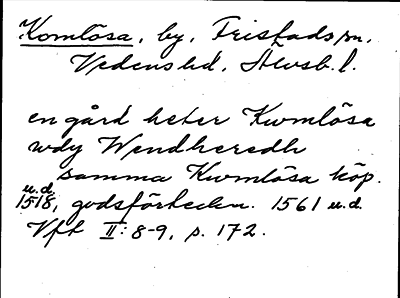 Komlösa, by, Fristads sn,
Vedens hd, Älvsb. l.
en gård heter Kwmlösa
wdy Wendheredh
samma Kwmlösa köp.
u.d.
1518, godsförteckn. 1561 u.d.
Vft II: 8-9, s. 172.